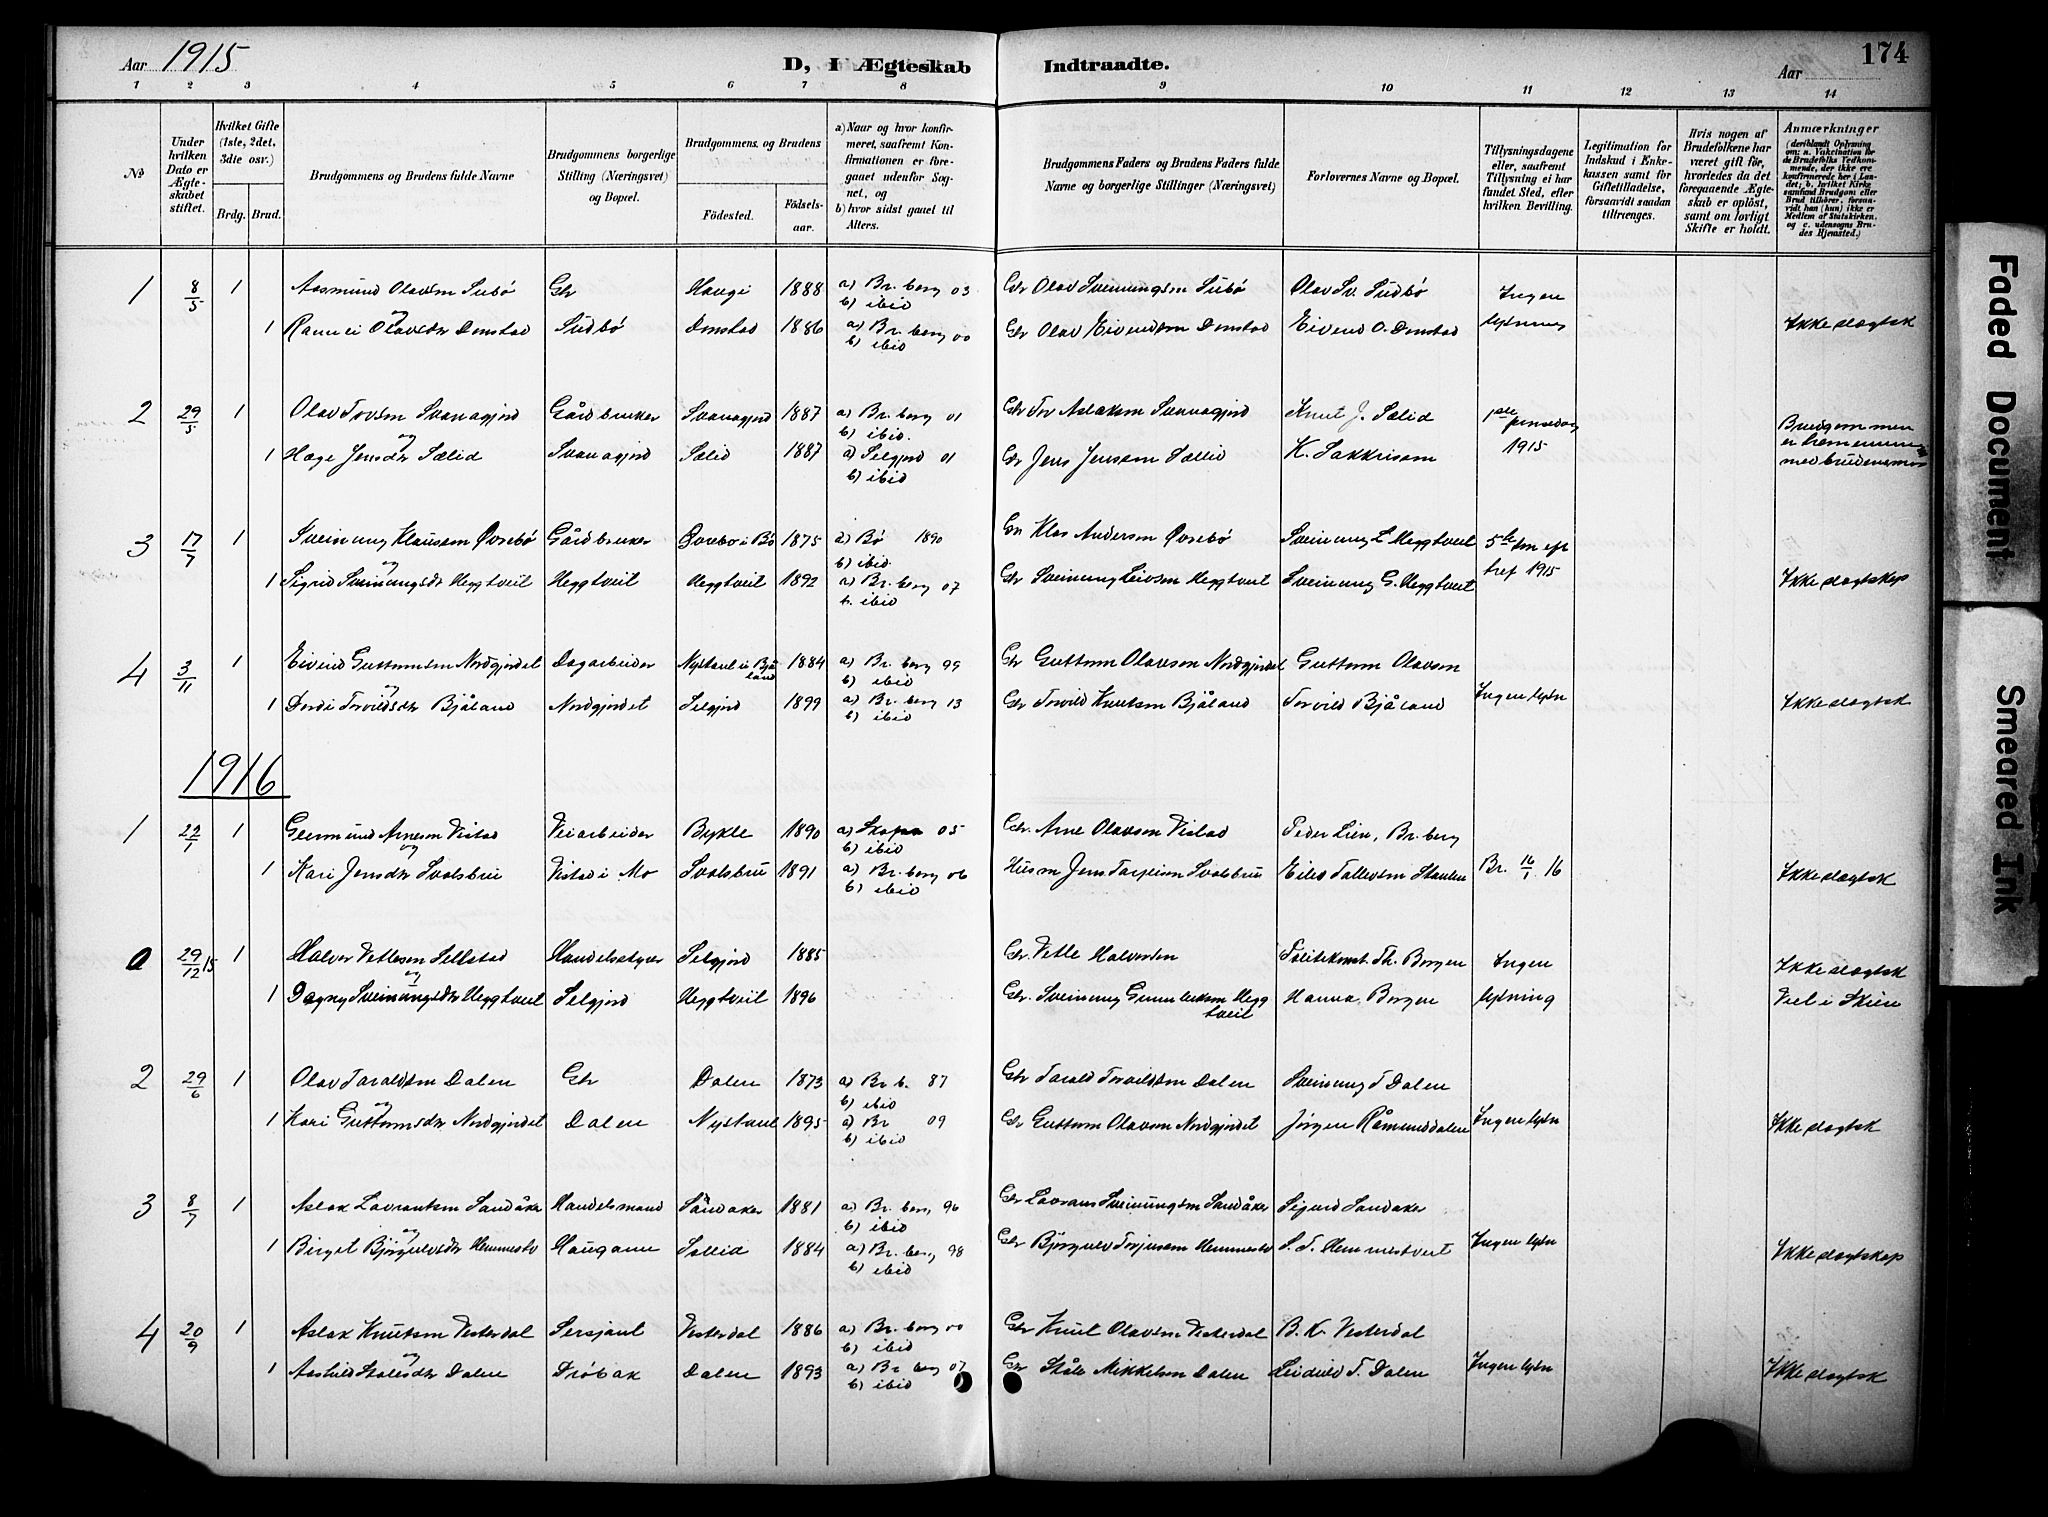 Aar 1915 D, I Ægteskab Indtraadte. Aar 174
1 2 3 4 5 6 7 8 9 10 11 12 13 14
No
Under hvilken Dato er Ægteskabet stiftet.
Hvilket Gifte (1ste, 2det, 3die osv.)
Brdg. Brud.
Brudgommens og Brudens fulde Navne
Brudgommens borgerlige Stilling (Næringsvei) og Bopæl.
Brudgommens og Brudens
Födested. Födselsaar.
a) Naar og hvor konfirmeret, saafremt Konfirmationen er foregaaet udenfor Sognet, og
b) hvor sidst gaaet til Alters.
Brudgommens Faders og Brudens Faders fulde Navne og borgerlige Stillinger (Næringsvei)
Forlovernes Navne og Bopæl.
Tillysningsdagene eller, saafremt Tillysning ei har fundet Sted, efter hvilken Bevilling.
Legitimation for Indskud i Enkekassen samt for Giftetilladelse, forsaavidt saadan tiltrænges.
Hvis nogen af Brudefolkene har været gift för, hvorledes da det foregaaende Ægteskab er oplöst, samt om lovligt Skifte er holdt.
Anmærkninger (deriblandt Oplysning om: a. Vakcination for de Brudefolks Vedkommende, der ikke ere konfirmerede her i Landet; b. hvilket Kirkesamfund Brudgom eller Brud tilhörer, forsaavidt han (hun) ikke er Medlem af Statskirken, og c. udensogns Brudes Hjemsted.)
1 8/5 1 Aasmund Olavsm Subø Gbr Haugi 1888 a) Br. berg 03 b) ibid Gbr Olav Sveinungsm Subø Olav Sv. Sudbø Ingen
og
1 Rannei Olavsdtr Donstad Sudbø Donstad 1886 a) Br. berg 00 b) ibid Gbr Olav Eivendsm Donstad Eivend O. Donstad lysning Ikke slægtsk
2 29/5 1 Olav Torsm Svanagjord Gårdbruker Svanagjord 1887 a) Br. berg 01 b) ibid. Gbr Tor Aslaksm Svanagjord Knut J. Sælid 1ste pinsedag Brudgommen
og
1 Hæge Jensdtr Sælid Svanagjord Sælid 1887 a) Selgjord 01 b) ibid Gbr Jens Jenssøm Sælid K. Sakkrisøm 1915 er
3 17/7 1 Sveinung Klaussøm Øvrebø Gårdbruker Øvrebø i Bø 1875 a) Bø 1890 b) ibid. Gbr Klas Andersøn Øvrebø Sveinung L Heggtveit 5te
og
1 Sigrid Sveinungsdtr Heggtveit Heggtveit Heggtveit 1892 a) Br. berg 07 b. ibid Gbr Sveinung Leivsm Heggtveit Sveinung G. Heggtveit tref 1915 Ikke slægtskap
4 3/11 1 Eivind Guttormsm Nordgjordet Dagarbeider Nystaul i Bjåland 1884 a) Br. berg 99 b) ibid Gbr Guttorm Olavson Nordgjordet Guttorm Olavson
og
1 Dordi Torvildsdtr Bjåland Nordgjordet Selgjord 1899 a) Br. berg 13 b) ibid Gbr Torvild Knutsm Bjåland Torvild Bjåland Ingen lysn Ikke slægtsk
1916
1 22/1 1 Germund Arnesm Vistad Veiarbeider Bykle 1890 a) 05 b) ibid Gbr. Arne Olavson Vistad Peder Lien, Br. berg
og
1 Kari Jensdtr Svalsbru Vistad i Mo Svalsbru 1891 a) Br. berg 06 b) ibid Husm Jens Svalsbru Eilev Tallevsm Staulen Br. 16/1 16 Ikke slægtsk
0 29/12 15 1 Halvor Vetlesen Sellstad Handelsstyrer Selgjord 1885 Gbr. Vetle Halvorsen Th. Borgen Ingen Ikke slægtsk
og
1 Dagny Sveinungsdtr Heggtveit Selgjord Heggtveit 1896 Gbr. Sveinung Gunnleiksm Heggtveit Hanna Borgen lysning Viel i Skien
2 29/6 1 Olav Taraldsm Dalen Gbr Dalen 1873 a) Br b. 87 b) ibid Gbr Tarald Torvildsm Dalen Sveinung T Dalen
og
1 Kari Guttormsdtr Nordgjordet Dalen Nystaul 1895 a) Br 09 b) ibid Gbr Guttorm Olavson Nordgjordet Jørgen Råmunddalen Ingen lysn Ikke slægtsk
3 8/7 1 Aslak Lavrantsm Sandåker Handelsmand Såndaker 1881 a) Br. berg 96 b) ibid Gbr Lavrans Sveinungsm Sandåker Sigurd Sandaker
og
1 Birgit Bjørgulvsdtr Hemmestv Haugann Sollid 1884 a) Br. berg 98 b) ibid Gbr Bjørgulv Torjussøn Hemmestv S. T. Hemmestveit Ingen lysn Ikke slægtskap
4 20/9 1 Aslak Knutsm Vesterdal Sersjant Vesterdal 1886 a) Br. berg 00 b) ibid Gbr Knut Olavsm Vesterdal B. K. Vesterdal
og
1 Aashild Stålesdtr Dalen Drøbak Dalen 1893 a) Br berg 07 b) ibid Gbr Ståle Mikkelsm Dalen Leidulv T. Dalen Ingen lysn Ikke slægtsk
Faded Document
Smeared Ink